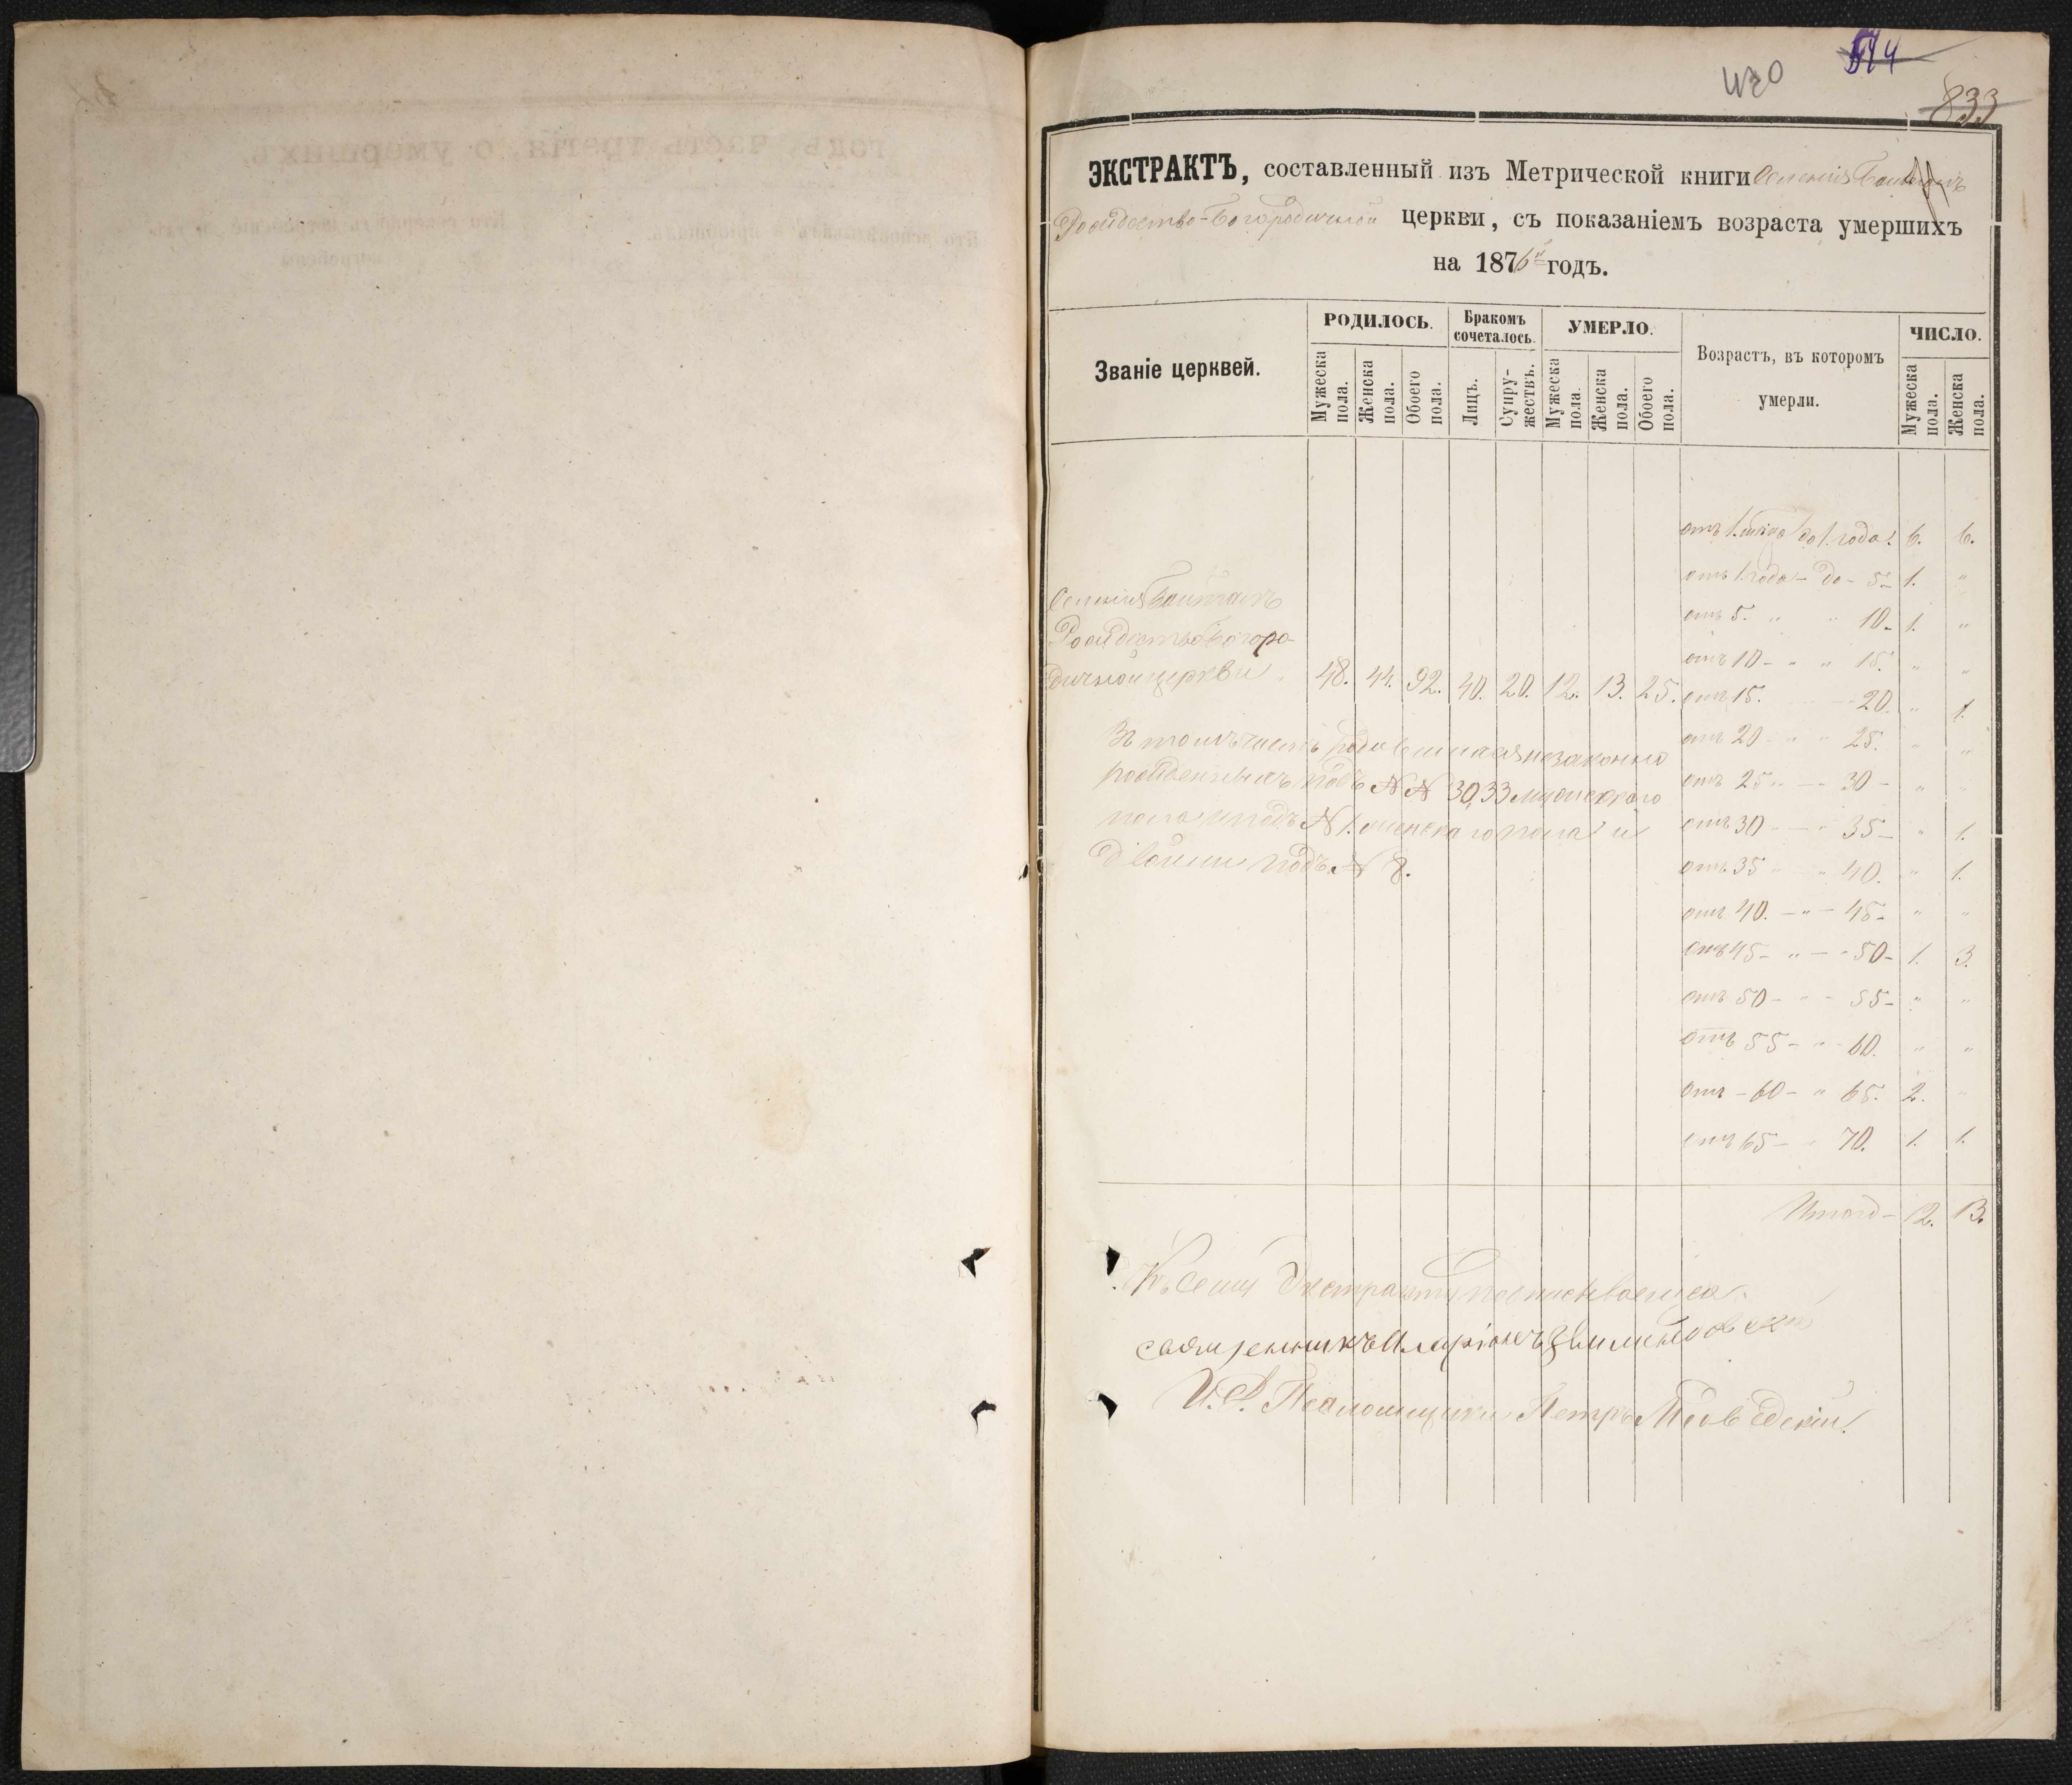 514
420
833
ЭКСТРАКТЪ, составленный изъ Метрической книги Селенія
Рождество-Богородичной церкви, съ показаніемъ возраста умершихъ
на 1876й годъ.
Званіе церквей.
РОДИЛОСЬ.
Мужеска пола.
Женска пола.
Обоего пола.
Бракомъ сочеталось.
Лицъ.
Супружествъ.
УМЕРЛО.
Мужеска пола.
Женска пола.
Обоего пола.
Возрастъ, въ которомъ
умерли.
ЧИСЛО.
Мужеска пола.
Женска пола.
отъ 1. до 1. года. 6. 6.
отъ 1. года - до - 5- 1. "
отъ 5. " " 10- 1. "
отъ 10- " " 15. " "
Селенія
Рождество Богоро-
дичной церкви 48. 44. 92. 40. 20. 12. 13. 25.
отъ 15. - - 20. " 1.
отъ 20 - " 25. " "
отъ 25 " - 30 - " "
отъ 30 - " 35- " 1.
отъ 35 " - " 40. " 1.
отъ 40. - " - 45- " "
отъ 45- " - - 50- 1. 3.
отъ 50- " - 55- " "
отъ 55- " - 60. " "
отъ - 60- " 65. 2. "
отъ 65- " 70. 1. 1.
Въ томъ числѣ незаконно
рожденныхъ подъ №№ 30, 33 мужескаго
пола и подъ № 1. женскаго пола и
двойни подъ № 8.
Итого- 12. 13.
Къ сему Экстракту подписываемся
священникъ Иларіонъ
И. д. Псаломщика Петръ